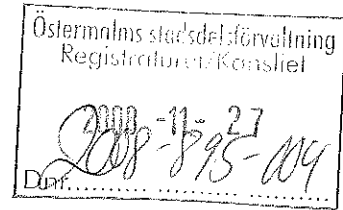 Östermalms stadsdelsförvaltning
Registraturet/Kansliet
2008 -11- 27
2008-895-004
Dnr..................................